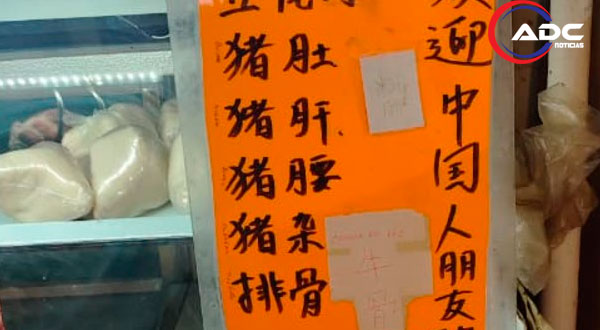 猪肚
猪肝
猪腰
猪杂
排骨
欢迎中国人朋友
牛骨
ADC
NOTICIAS